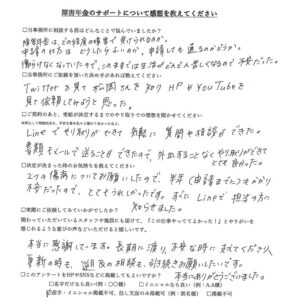 障害年金のサポートについて感想を教えてください
□当事務所に相談する前はどんなことで悩んでいましたか?
障害年金は、どの程度の障害で受けられるのか。
申請の仕方は、どうしたらよいか、申請しても通るのかどうか。
働けなくなっていたので、このままでは生活がどんどん苦しくなるので不安だった。
□当事務所にご依頼を頂いた決め手は何ですか?
Twitterを見て松岡さんを知りHPやYouTubeを
見て依頼してみようと思った。
□ご契約のあと、受給が決定するまでのやり取りはいかがでしたか?
Lineでやり取りができて気軽に質問や相談ができた。
書類もメールで送ることができたので、外出することなくやり取りができて
とても良かった。
□決定が決まった時のお気持ちを教えてください
2つの傷病についてお願いしたので、半年(申請まで)もかかり
不安だったので、とてもうれしかったです。すぐにLineで担当の方に
知らせました。
□実際にご依頼してみていかがでしたか?
関わっていただいているスタッフや施設にも届けて、「この仕事やっててよかった!」とやりがいを
感じれるような喜びの声などいただけると嬉しいです。
本当に感謝しています。長期に渡り、不安な時に支えてくださり
更新の時も、遡及の相談も引き続きお願いしたいです。
本当にありがとうございました。
□このアンケートをHPやSNSなどに掲載してもよいですか?
名字だけなら良い(例:田中様) イニシャル掲載可(例:T様)
苗字・イニシャル掲載不可、但し文面のみ掲載可(例:匿名様) 掲載不可